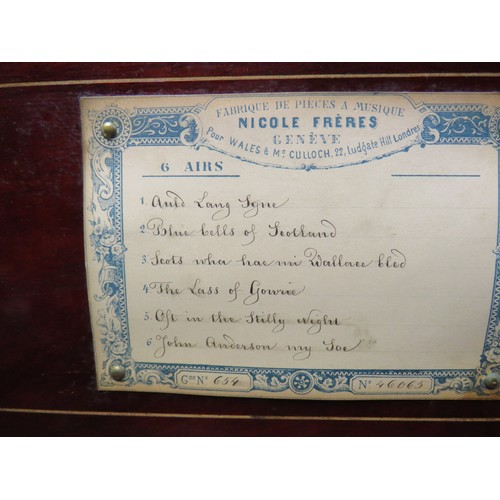 FABRIQUE DE PIECES A MUSIQUE
NICOLE FRÈRES
GENÈVE
Pour WALES & Mc CULLOCH, 22, Ludgate Hill Londres
6 AIRS
1. Auld Lang Syne
2. Blue bells of Scotland
3. Scots wha hae wi Wallace bled
4. The Lass of Gowrie
5. Oft in the Stilly Night
6. John Anderson my Joe
Gme No 654
No 46065